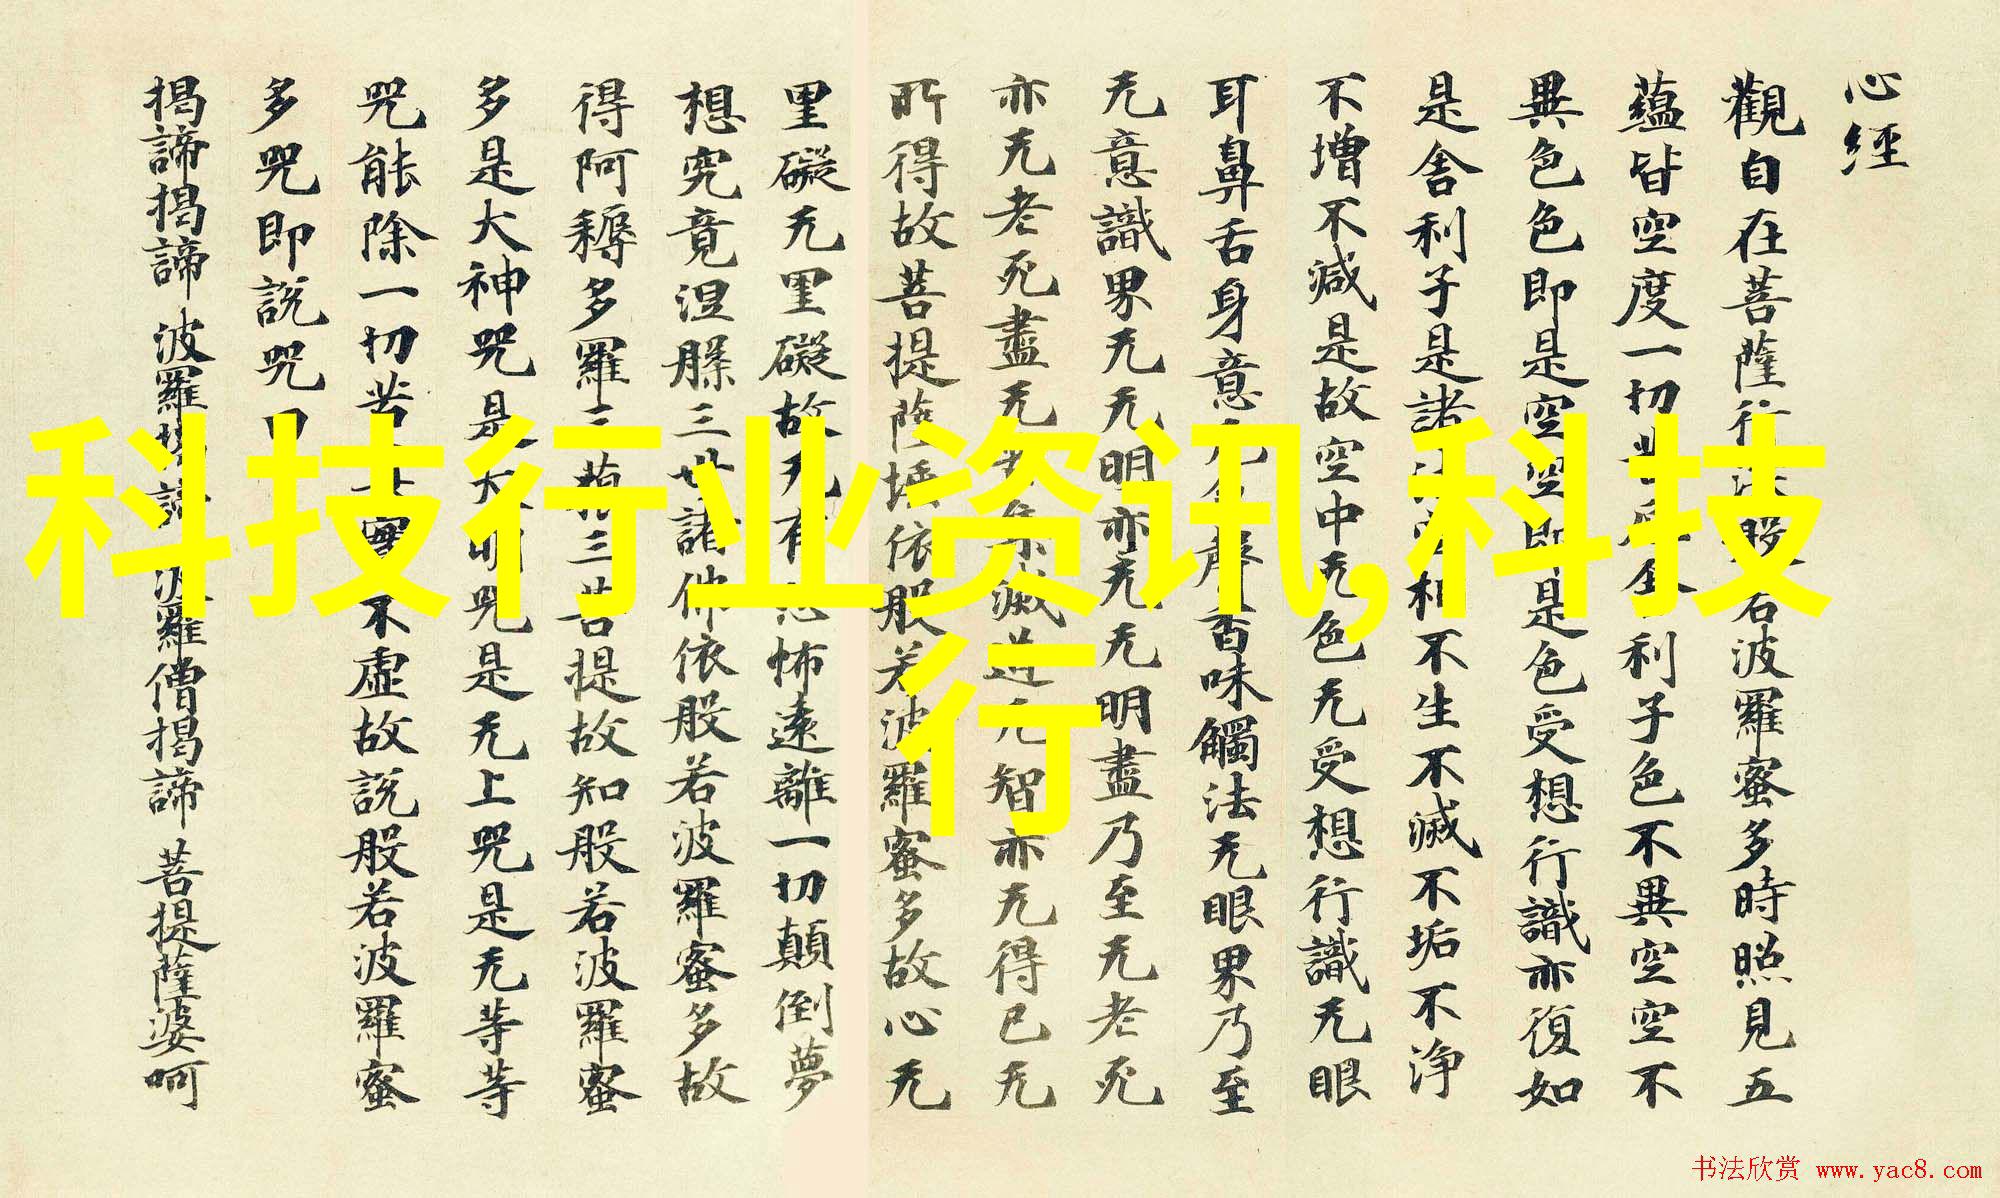 心經
觀自在菩薩行深般若波羅蜜多時照見五
蘊皆空度一切苦厄舍利子色不異空空不
異色色即是空空即是色受想行識亦復如
是舍利子是諸法空相不生不滅不垢不淨
不增不減是故空中无色无受想行識无眼
耳鼻舌身意无色聲香味觸法无眼界乃至
无意識界无无明亦无无明盡乃至无老死
亦无老死盡无苦集滅道无智亦无得已无
所得故菩提薩埵依般若波羅蜜多故心无
罣礙无罣礙故无有恐怖遠離一切顛倒夢
想究竟涅槃三世諸佛依般若波羅蜜多故
得阿耨多羅三藐三菩提故知般若波羅蜜
多是大神咒是大明咒是无上咒是无等等
咒能除一切苦真實不虛故說般若波羅蜜
多咒即說咒曰
揭諦揭諦 波羅揭諦 波羅僧揭諦 菩提薩婆呵
科技行业资讯,科技
行
书法欣赏 www.yac8.com